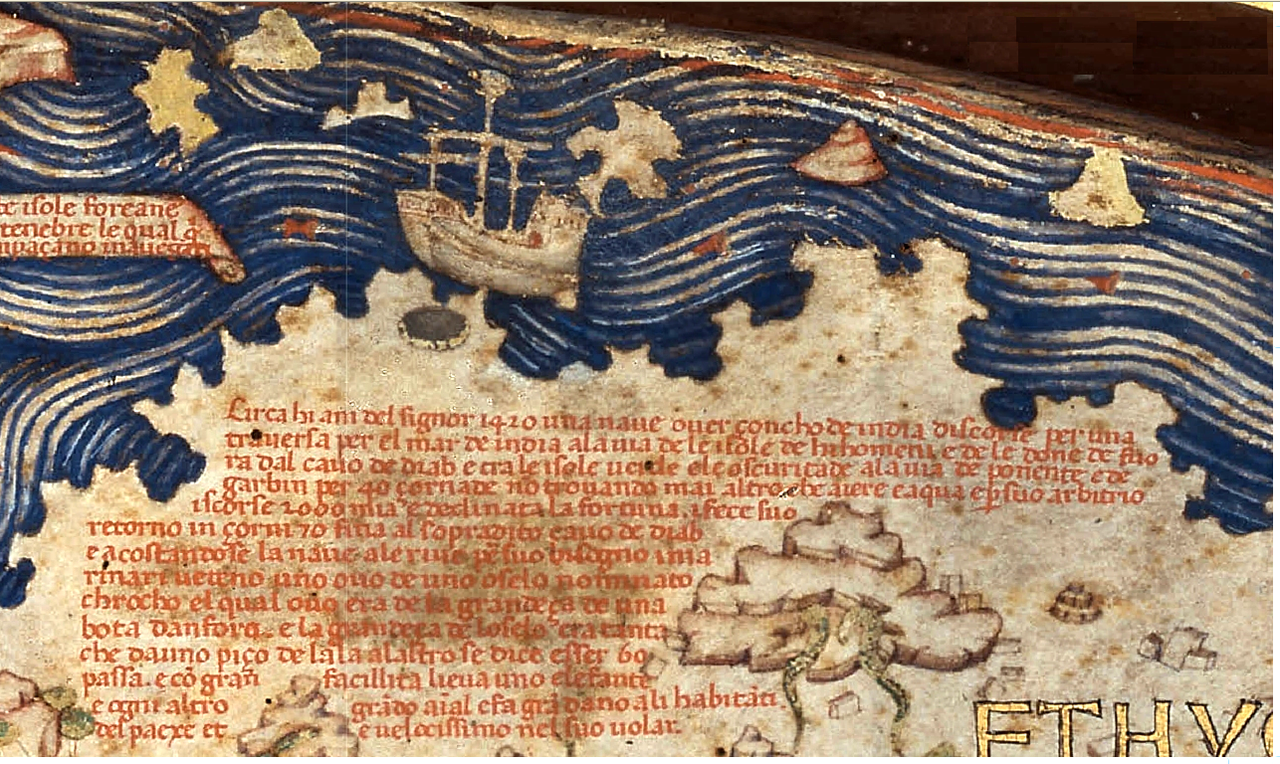 te isole foreane
tenebre le qual
Circa hi ani del signor 1420 una naue ouer çoncho de india discorse per una
trauersa per el mar de india ala uia de le isole de hi homeni e de le done de fuo
ra dal cauo de diab e tra le isole uerde e le oscuritade ala uia de ponente e de
garbin per 40 çornade nõ trouando mai altro che aiere e aqua e p̃ suo arbitrio
iscorse 2000 mia e declinata la fortuna i fece suo
retorno in çorni 70 fina al sopradito cauo de diab
e acostandose la naue ale riue p̃ suo bisogno i ma
rinari uedeno uno ouo de uno oselo nominato
chrocho el qual ouo era de la grandeça de una
bota danfora e la grandeça de loselo era tanta
che dauno piço de lala alaltro se dice esser 60
passa. e cõ gran facillita lieua uno elefante
e ogni altro grãdo aĩal e fa grã dano a li habitãti
del paexe et e uelocissimo nel suo uolar.
ETHYO